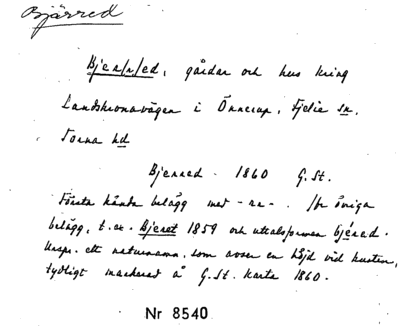 Bjärred
Bjer/r/ed, gårdar och hus kring
Landskronavägen i Önnerup, Fjelie sn.
Torna hd
Bjerred - 1860 G.St.
Första kända belägg med -rr-. För övriga
belägg, t.ex. Bjeret 1859 och uttalsformen bjéred.
Urspr. ett naturnamn, som avser en höjd vid kusten,
tydligt markerad å G.St. karta 1860.
Nr 8540